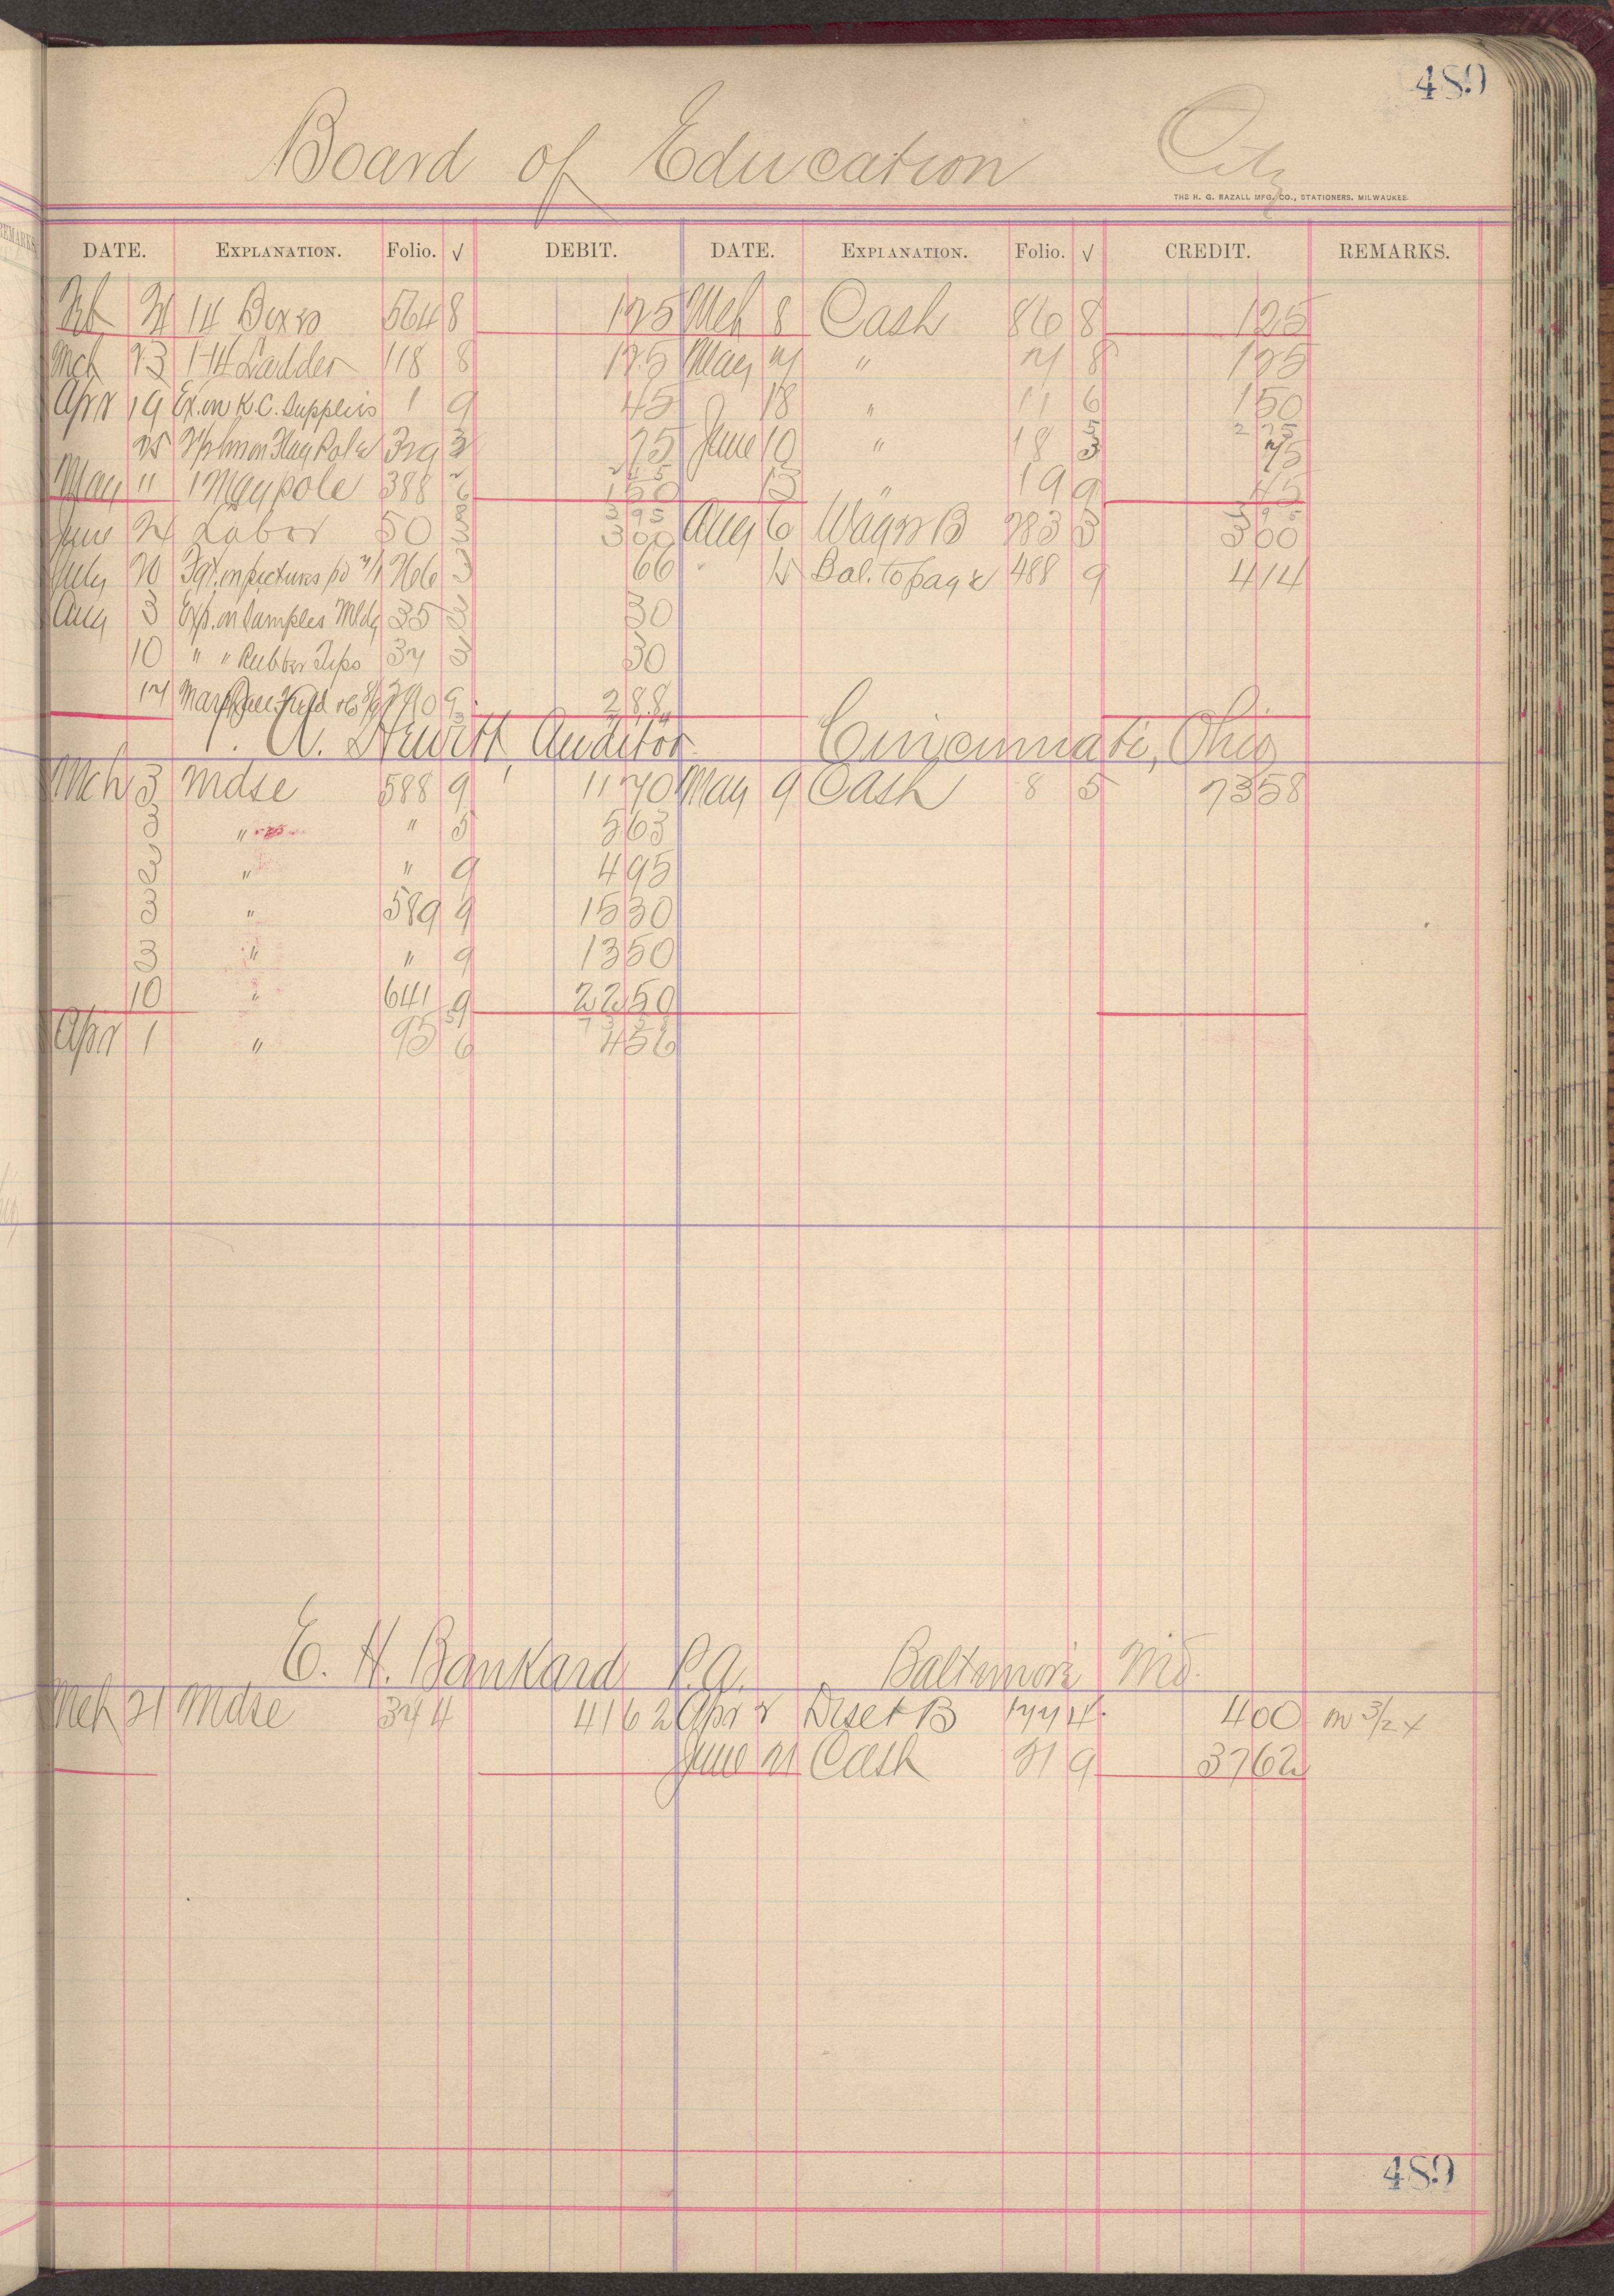 489
Board of Education City
THE H. G. RAZALL MFG. CO., STATIONERS, MILWAUKEE.
REMARKS
DATE. EXPLANATION. Folio. √ DEBIT. DATE. EXPLANATION. Folio. √ CREDIT. REMARKS.
Feb 14 Boxes 564 8 125 Mch 8 Cash 86 8 125
Mch 23 1-14 Ladder 118 8 125 May " 8 125
Apr 19 Ex. on K.C. Supplies 1 9 45 18 " 11 6 150
25 on Flag Pole 329 3 75 June 10 " 18 3 75
May 11 1 Maypole 388 6 150 13 " 19 9 45
June Labor 50 3 300 Aug 6 Wagner B 283 3 300
July 20 on pictures pd 266 3 66 " Bal. to page 488 9 414
Aug 3 Exp. on Samples Mldg 35 3 30
10 " " Rubber Tips 37 3 30
Marshall Field 9 288
A. Hewitt, Auditor Cincinnati, Ohio
Mch 3 Mdse 588 9 1170 May 9 Cash 8 5 7358
3 " " 5 563
3 " " 9 495
3 " 589 9 1530
3 " " 9 1350
10 " 641 9 2250
Apr 1 " 95 6 456
E. H. Bankard P.A. Baltimore Md.
Mch 21 Mdse 374 4 4162 Apr 2 Dset B 177 4 400 m 3/2 x
June 21 Cash 21 9 3762
489